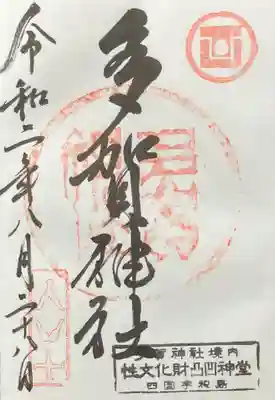 多賀神社
令和二年八月二十八日
多賀神社境内
性文化財凸凹神堂
四国宇和島